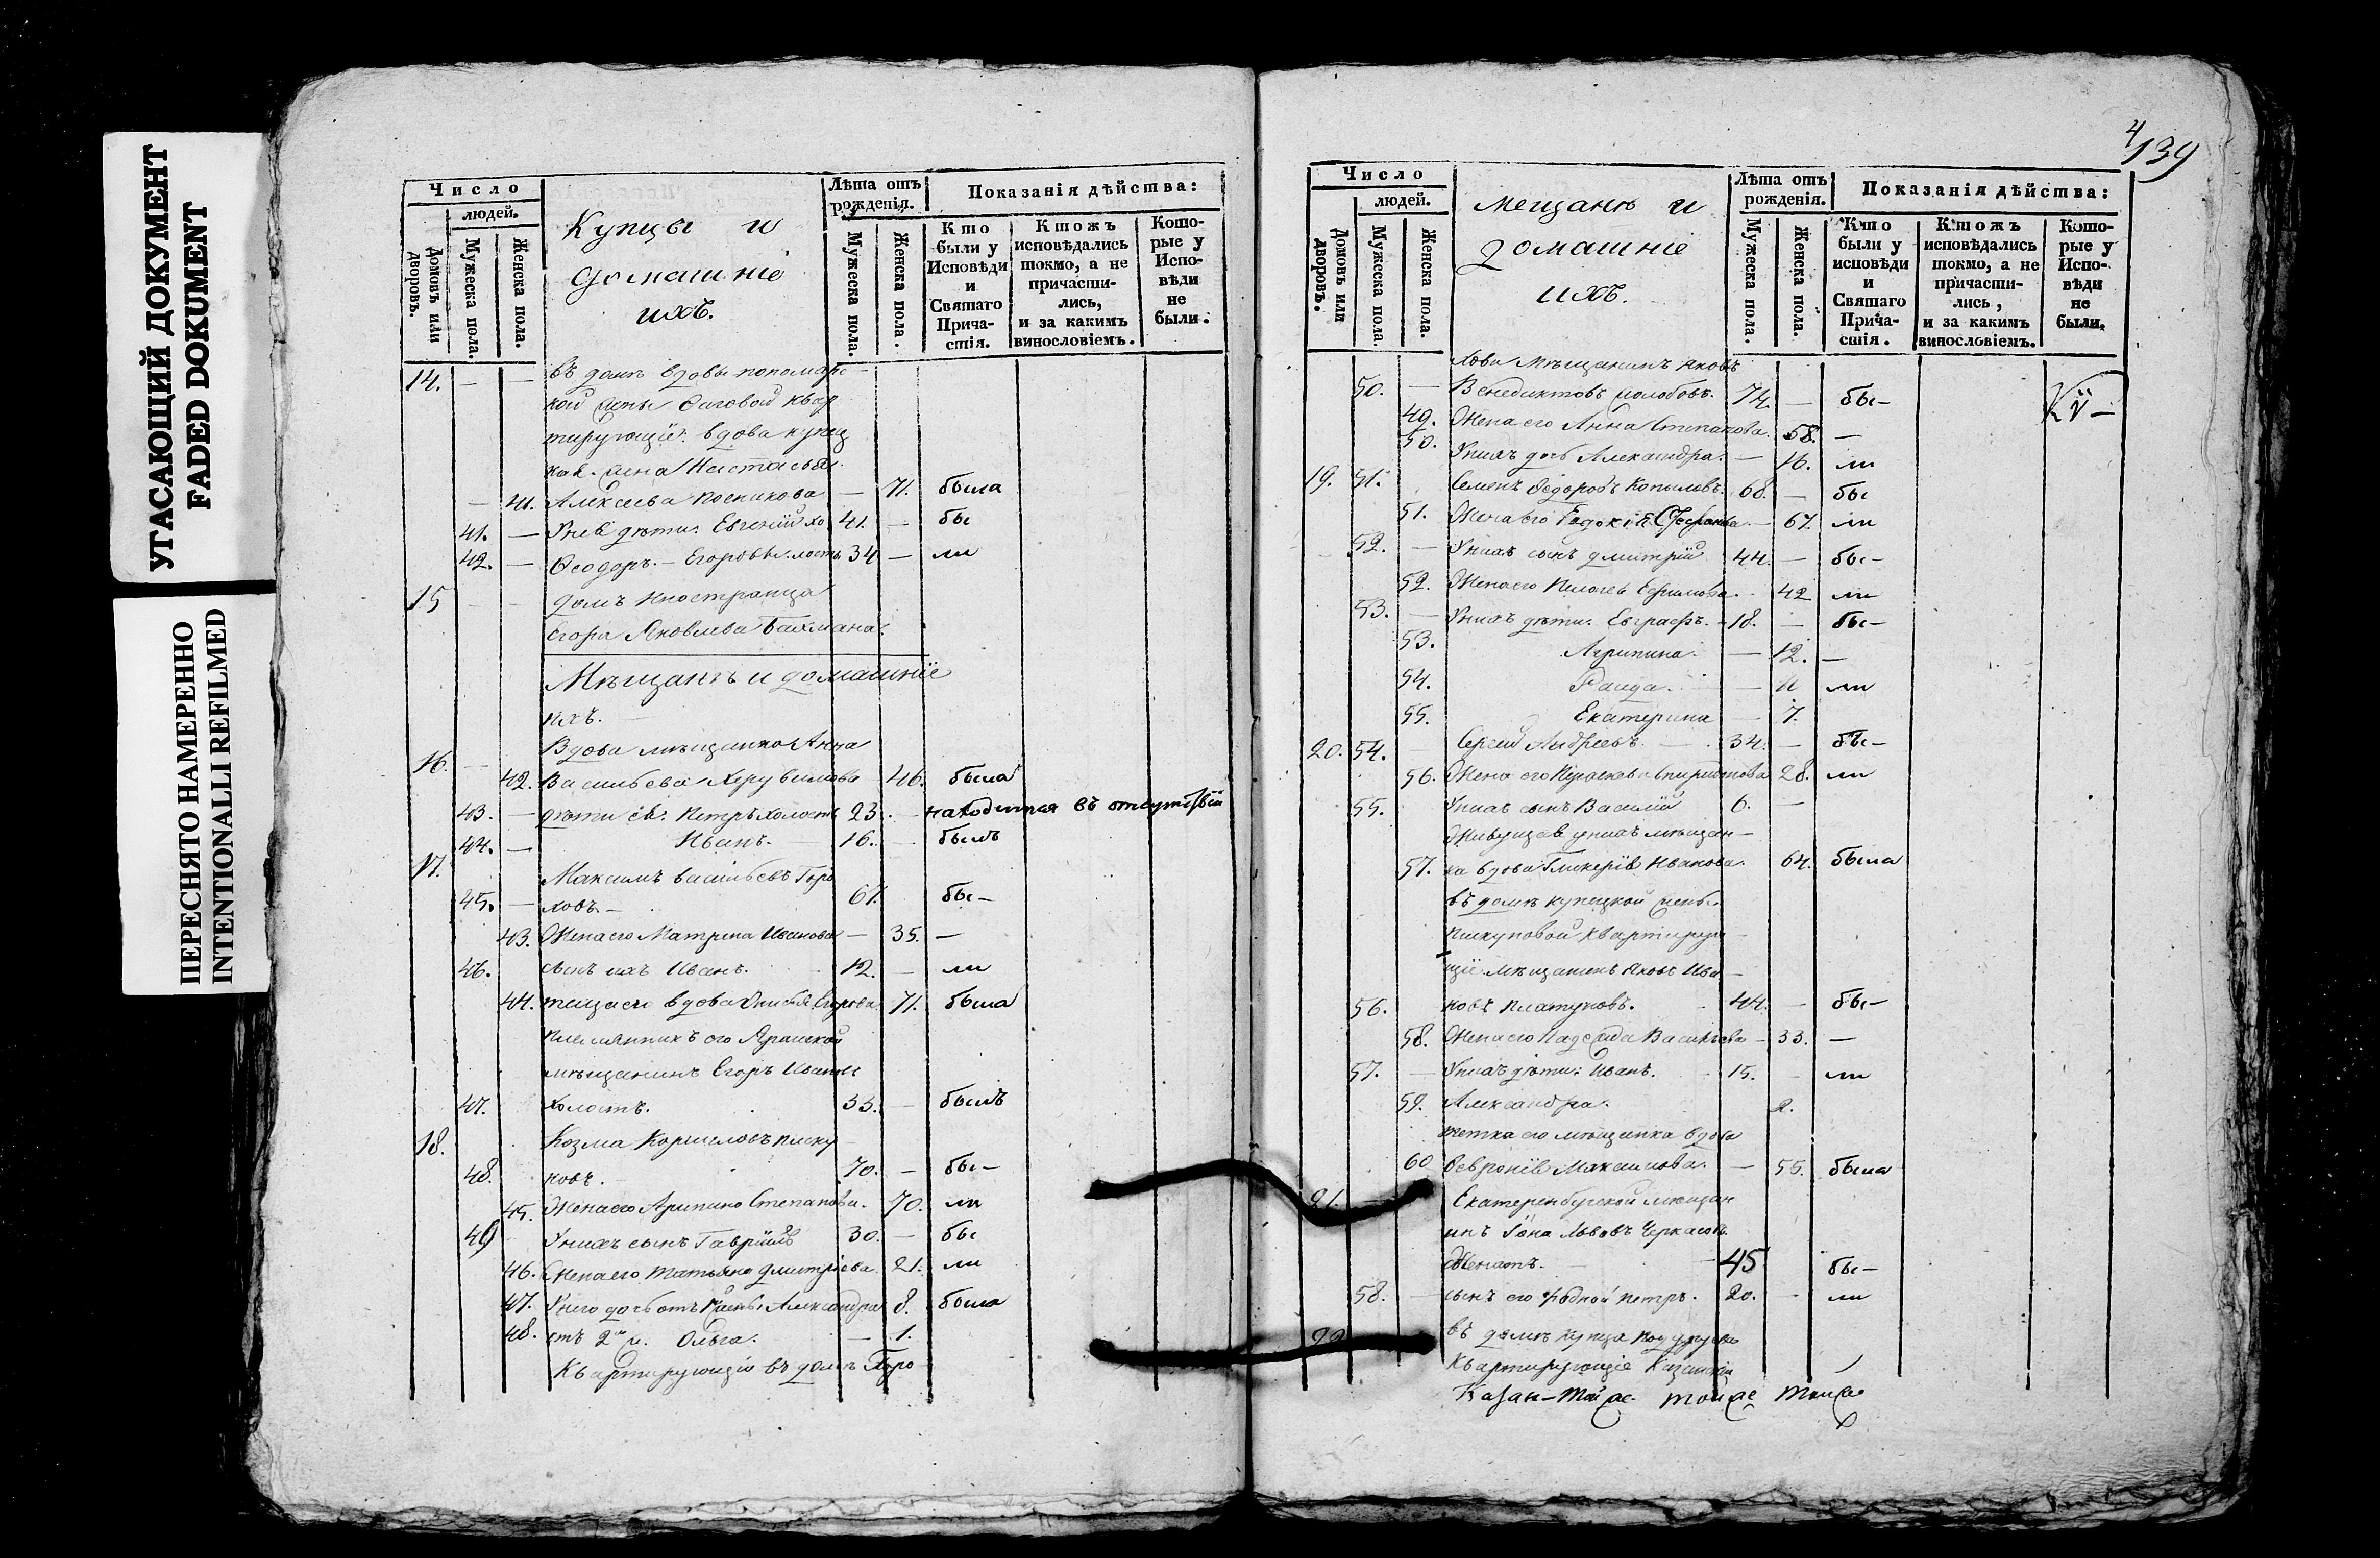 УГАСАЮЩИЙ ДОКУМЕНТ
FADED DOKUMENT
ПЕРЕСНЯТО НАМЕРЕННО
INTENTIONALLI REFILMED
Число
людей.
Домовъ или дворовъ.
Мужеска пола.
Женска пола.
Купцы и
домашніе
ихъ.
Лѣта отъ рожденія.
Мужеска пола.
Женска пола.
Показанія дѣйства:
Кто были у Исповѣди и Святаго Причастія.
Ктожъ исповѣдались токмо, а не причастились, и за какимъ винословіемъ.
Которые у Исповѣди не были.
14. — — въ домѣ вдовы
квар
тирующіе: вдова купец
Настасья
— 41. Алексеева — 71. была
41. — Унея дѣти: Евгеній хо 41. — бы
42. — Ѳеодоръ. — Егоровы. лосты 34 — ли
15 — — домъ Иностранца
Егора Яковлева Бахмана.
Мѣщанѣ и домашніе
ихъ.
16. — Вдова мѣщанка Анна
42. Васильева Херувимова 46. была
43. — дѣти ея: Петръ холостъ 23. — находится въ отсутствіи
44. — Иванъ. 16. — былъ
17. Максимъ Васильевъ Горо
45. — ховъ. — 67. бы —
43. Жена его Матрена Иванова — 35. —
46. сынъ ихъ Иванъ. 12. — ли
44. теща его вдова Егорова 71. была
племянникъ его
мѣщанинъ Егоръ Ивановъ
47. холостъ. 33. — былъ
18. Козма Корниловъ Писку
48. новъ. — 70. — бы —
45. Жена его Степанова. 70. ли
49 Унихъ сынъ Гавріилъ 30. — бы
46. Жена его Татьяна Дмитріева 21. ли
47. Унего дочь отъ Александра 8. была
48. отъ 2й ж. Ольга. — 1.
Квартирующіе въ домѣ Горо
4/139
Число
людей.
Домовъ или дворовъ.
Мужеска пола.
Женска пола.
Мещанѣ и
домашніе
ихъ.
Лѣта отъ рожденія.
Мужеска пола.
Женска пола.
Показанія дѣйства:
Кто были у исповѣди и Святаго Причастія.
Ктожъ исповѣдались токмо, а не причастились, и за какимъ винословіемъ.
Которые у Исповѣди не были.
хова мѣщанинъ Яковъ
50. — Венедиктовъ 74. — бы —
49. Жена его Анна Степанова. 58. —
50. Унихъ дочь Александра. — 16. ли
19. 51. Семенъ Ѳедоровъ Копыловъ. 68. — бы
51. Жена его — 67. ли
52. — Унихъ сынъ Дмитрій 44. — бы —
52. Жена его Ефимова. 42 ли
53. — Унихъ дѣти: Евграфъ. — 18. — бы —
53. Агрипина. — 12. —
54. Раида. — 11 ли
55. Екатерина — 7.
20. 54. — Сергей Андреевъ. — 34. — бы —
56. Жена его Спиридонова 28. ли
55. Унихъ сынъ Василій 6. —
Живущая унихъ мѣщан —
57. ка вдова Гликерія Иванова. 64. была
въ домѣ купецкой
Пискуновой квартирую —
щіе мѣщанинъ Яковъ Ива —
56. новъ Платуновъ. 44. — бы —
58. Жена его Надежда Васильева — 33. —
57. — Унихъ дѣти: Иванъ. 15. — ли
59. Александра. 2.
тетка его мѣщанка вдова
60 Ѳевронія Максимова. — 55. была
21. Екатеринбургской мѣщан
инъ Іона Львовъ Черкасовъ
женатъ. — 45 бы —
58. — сынъ его родной Петръ. 20. — ли
22 въ домѣ купца
Квартирующіе